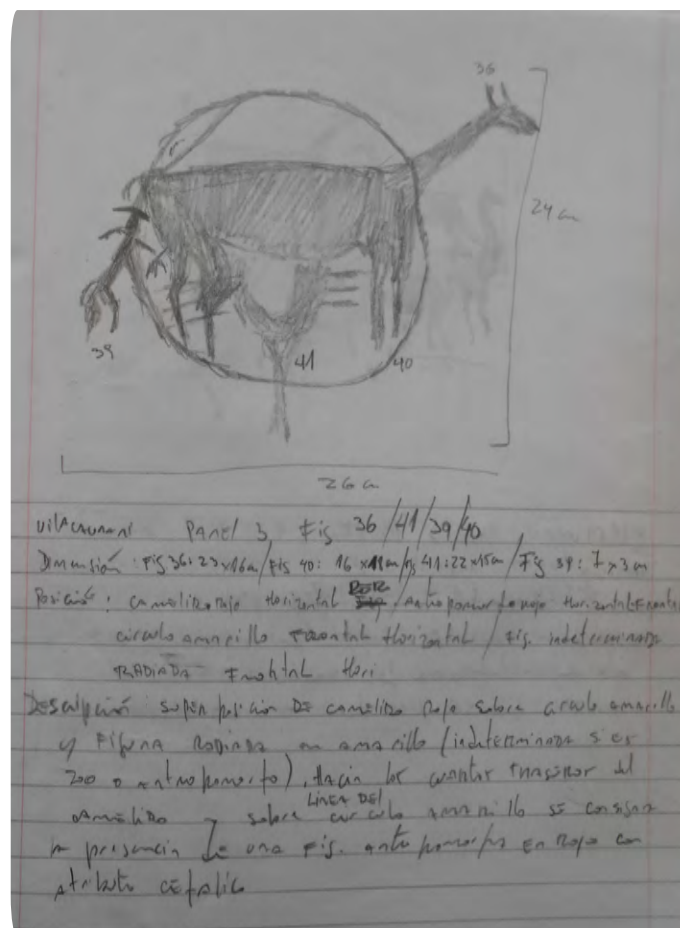 36
24 cm
39
41
40
26 cm
Vilacaurani Panel 3 Fig 36/41/39/40
Dimensión: Fig 36: 23x16cm/Fig 40: 16 x11cm/fig 41: 22x15cm/Fig 39: 7x3cm
Posición: camélido rojo Horizontal / Antropomorfo rojo Horizontal Frontal
circulo amarillo Frontal Horizontal / Fig. indeterminada
RADIADA Frontal Hori
Descripción: superposición DE camélido Rojo sobre circulo amarillo
y FIGURA RADIADA en amarillo (indeterminada si es
zoo o antropomorfo). Hacia los cuartos traseros del
camélido y sobre LINEA DEL circulo amarillo se consigna
la presencia de una Fig. antropomorfa En Rojo con
atributo cefálico